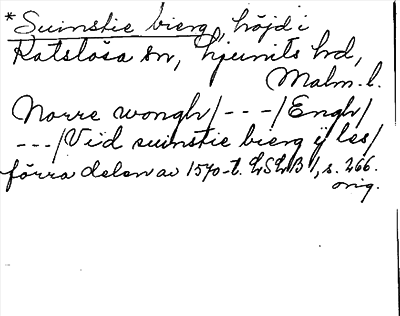 *Suinstie bierg, höjd i
Katslösa sn, Ljunits hd,
Malm. l.
Norre wongh/---/Engh/
---/Vid suinstie bierg ij les/
förra delen av 1570-t. LSLB 1, s. 266.
orig.